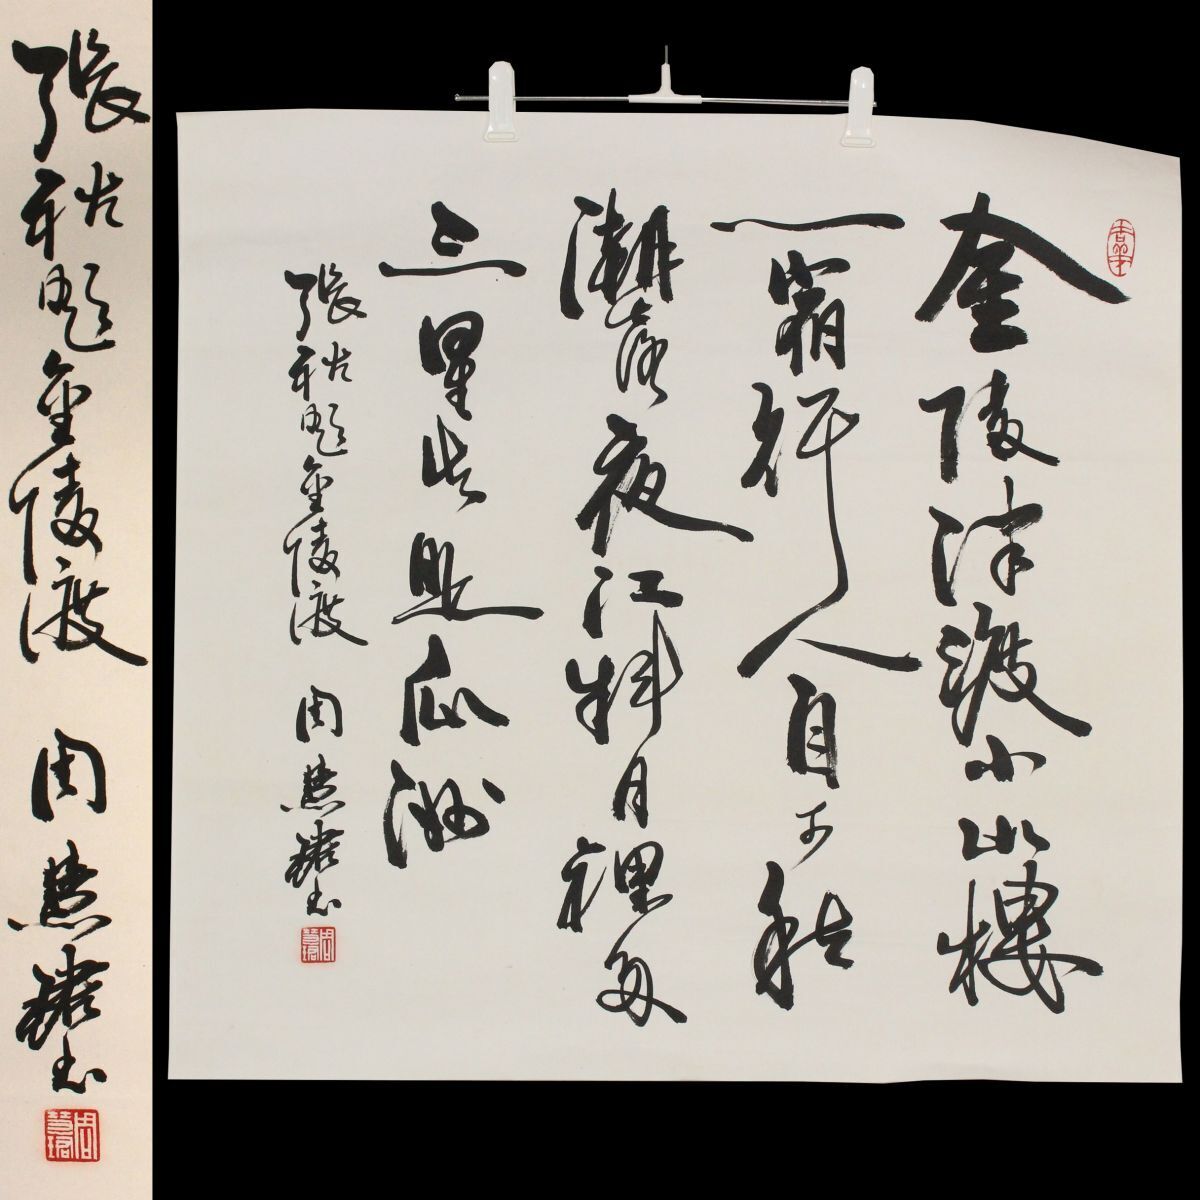 金陵津渡小山樓
一宿行人自可愁
潮落夜江斜月裡兩
三星火是瓜洲
張祜題金陵渡 周慧珺書
周慧珺
張祜題金陵渡 周慧珺書
周慧珺